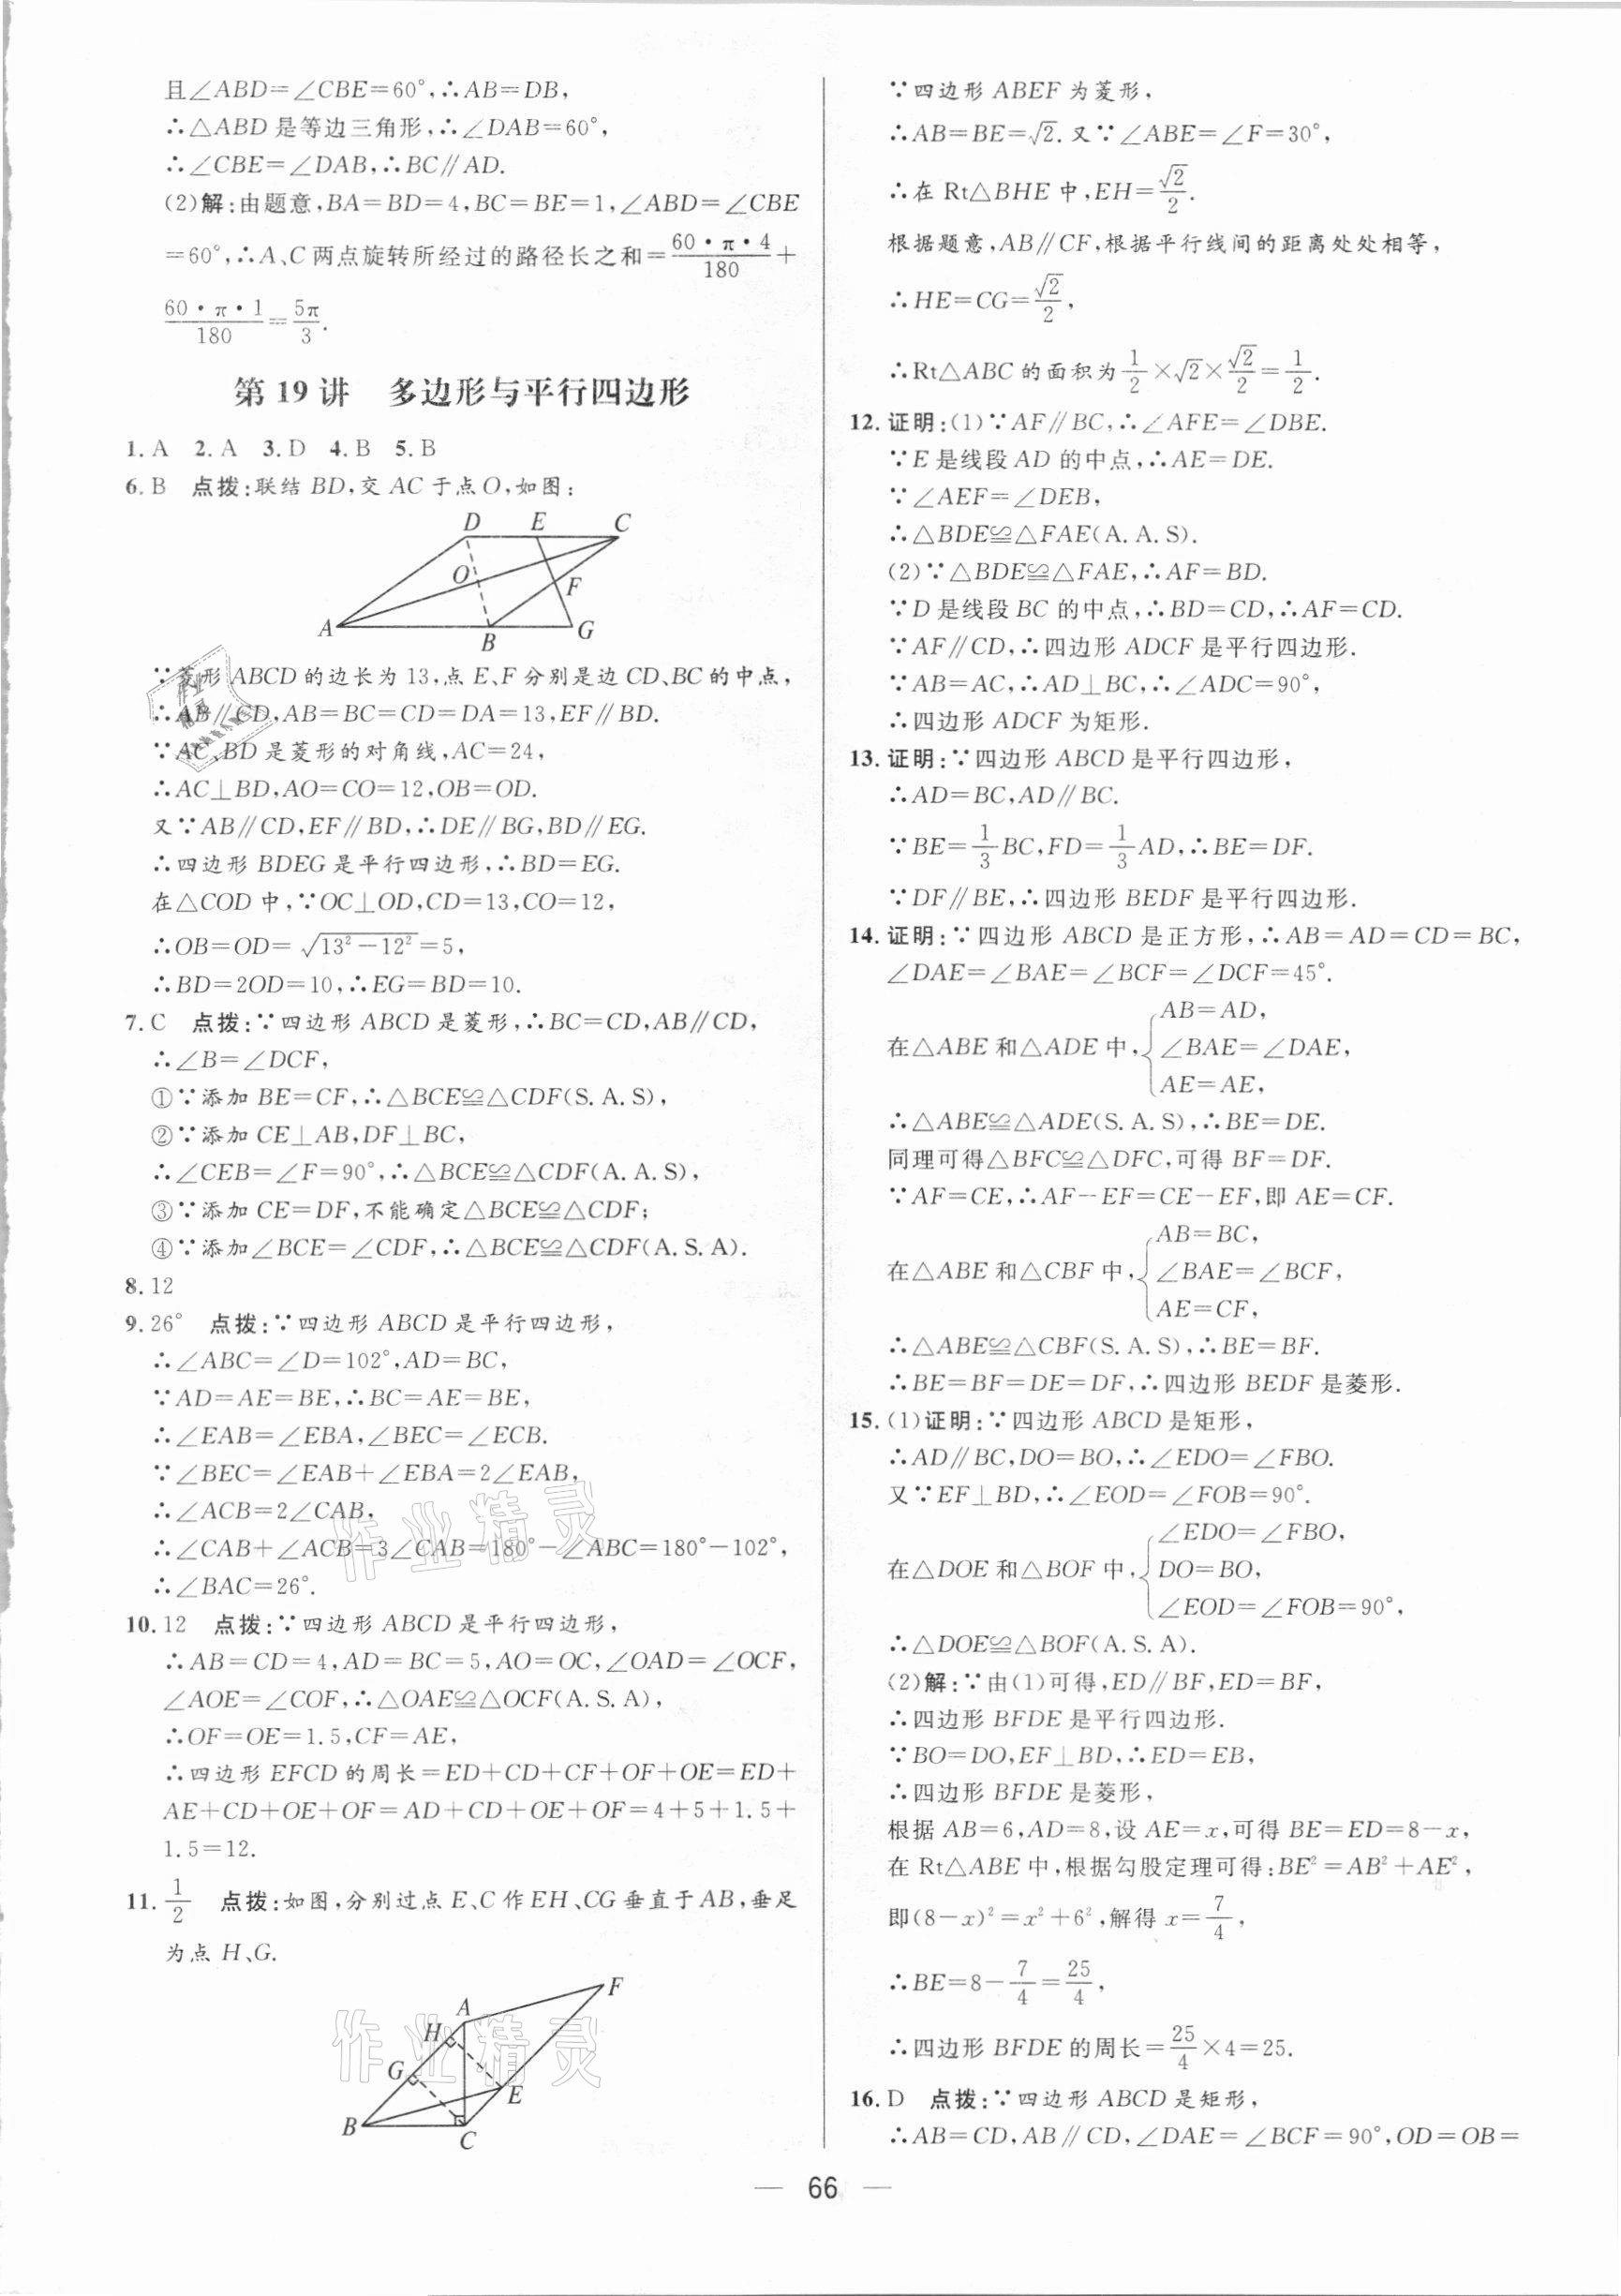 且∠ABD=∠CBE=60°,∴AB=DB,
∴△ABD 是等边三角形,∴∠DAB=60°,
∴∠CBE=∠DAB,∴BC∥AD.
(2)解:由题意,BA=BD=4,BC=BE=1,∠ABD=∠CBE
=60°,∴A、C 两点旋转所经过的路径长之和=60·π·4/180+
60·π·1/180=5π/3.
第 19 讲 多边形与平行四边形
1. A 2. A 3. D 4. B 5. B
6. B 点拨:联结 BD,交 AC 于点 O,如图:
D E C
O F
A B G
∵菱形 ABCD 的边长为 13,点 E、F 分别是边 CD、BC 的中点,
∴AB∥CD,AB=BC=CD=DA=13,EF∥BD.
∵AC、BD 是菱形的对角线,AC=24,
∴AC⊥BD,AO=CO=12,OB=OD.
又∵AB∥CD,EF∥BD,∴DE∥BG,BD∥EG.
∴四边形 BDEG 是平行四边形,∴BD=EG.
在△COD 中,∵OC⊥OD,CD=13,CO=12,
∴OB=OD=√(13²-12²)=5,
∴BD=2OD=10,∴EG=BD=10.
7. C 点拨:∵四边形 ABCD 是菱形,∴BC=CD,AB∥CD,
∴∠B=∠DCF,
①∵添加 BE=CF,∴△BCE≌△CDF(S. A. S),
②∵添加 CE⊥AB,DF⊥BC,
∴∠CEB=∠F=90°,∴△BCE≌△CDF(A. A. S),
③∵添加 CE=DF,不能确定△BCE≌△CDF;
④∵添加∠BCE=∠CDF,∴△BCE≌△CDF(A. S. A).
8. 12
9. 26° 点拨:∵四边形 ABCD 是平行四边形,
∴∠ABC=∠D=102°,AD=BC,
∵AD=AE=BE,∴BC=AE=BE,
∴∠EAB=∠EBA,∠BEC=∠ECB.
∵∠BEC=∠EAB+∠EBA=2∠EAB,
∴∠ACB=2∠CAB,
∴∠CAB+∠ACB=3∠CAB=180°-∠ABC=180°-102°,
∴∠BAC=26°.
10. 12 点拨:∵四边形 ABCD 是平行四边形,
∴AB=CD=4,AD=BC=5,AO=OC,∠OAD=∠OCF,
∠AOE=∠COF,∴△OAE≌△OCF(A. S. A),
∴OF=OE=1.5,CF=AE,
∴四边形 EFCD 的周长=ED+CD+CF+OF+OE=ED+
AE+CD+OE+OF=AD+CD+OE+OF=4+5+1.5+
1.5=12.
11. 1/2 点拨:如图,分别过点 E、C 作 EH、CG 垂直于 AB,垂足
为点 H、G.
F
A
H
G
E
B
C
∵四边形 ABEF 为菱形,
∴AB=BE=√2. 又∵∠ABE=∠F=30°,
∴在 Rt△BHE 中,EH=√2/2.
根据题意,AB∥CF,根据平行线间的距离处处相等,
∴HE=CG=√2/2,
∴Rt△ABC 的面积为 1/2×√2×√2/2=1/2.
12. 证明:(1)∵AF∥BC,∴∠AFE=∠DBE.
∵E 是线段 AD 的中点,∴AE=DE.
∵∠AEF=∠DEB,
∴△BDE≌△FAE(A. A. S).
(2)∵△BDE≌△FAE,∴AF=BD.
∵D 是线段 BC 的中点,∴BD=CD,∴AF=CD.
∵AF∥CD,∴四边形 ADCF 是平行四边形.
∵AB=AC,∴AD⊥BC,∴∠ADC=90°,
∴四边形 ADCF 为矩形.
13. 证明:∵四边形 ABCD 是平行四边形,
∴AD=BC,AD∥BC.
∵BE=1/3BC,FD=1/3AD,∴BE=DF.
∵DF∥BE,∴四边形 BEDF 是平行四边形.
14. 证明:∵四边形 ABCD 是正方形,∴AB=AD=CD=BC,
∠DAE=∠BAE=∠BCF=∠DCF=45°.
AB=AD,
在△ABE 和△ADE 中,{∠BAE=∠DAE,
AE=AE,
∴△ABE≌△ADE(S. A. S),∴BE=DE.
同理可得△BFC≌△DFC,可得 BF=DF.
∵AF=CE,∴AF-EF=CE-EF,即 AE=CF.
AB=BC,
在△ABE 和△CBF 中,{∠BAE=∠BCF,
AE=CF,
∴△ABE≌△CBF(S. A. S),∴BE=BF.
∴BE=BF=DE=DF,∴四边形 BEDF 是菱形.
15. (1)证明:∵四边形 ABCD 是矩形,
∴AD∥BC,DO=BO,∴∠EDO=∠FBO.
又∵EF⊥BD,∴∠EOD=∠FOB=90°.
∠EDO=∠FBO,
在△DOE 和△BOF 中,{DO=BO,
∠EOD=∠FOB=90°,
∴△DOE≌△BOF(A. S. A).
(2)解:∵由(1)可得,ED∥BF,ED=BF,
∴四边形 BFDE 是平行四边形.
∵BO=DO,EF⊥BD,∴ED=EB,
∴四边形 BFDE 是菱形,
根据 AB=6,AD=8,设 AE=x,可得 BE=ED=8-x,
在 Rt△ABE 中,根据勾股定理可得:BE²=AB²+AE²,
即(8-x)²=x²+6²,解得 x=7/4,
∴BE=8-7/4=25/4,
∴四边形 BFDE 的周长=25/4×4=25.
16. D 点拨:∵四边形 ABCD 是矩形,
∴AB=CD,AB∥CD,∠DAE=∠BCF=90°,OD=OB=
— 66 —
作业精灵
作业精灵